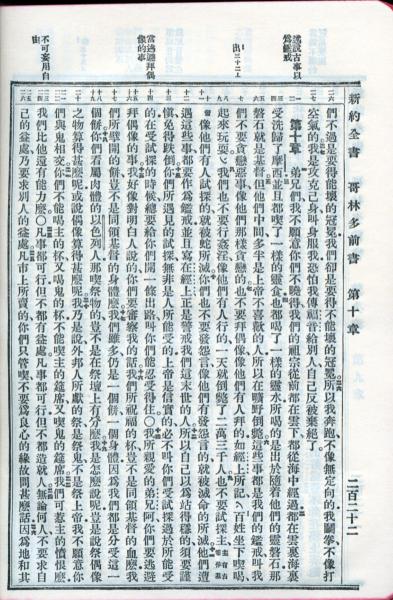 新約全書 哥林多前書 第十章 二百二十二
述說古事以
為鑑戒
當逃避拜偶
像的事
不可妄用自
由
們不過是要得能壞的冠冕我們卻是要得不能壞的冠冕所以我奔跑不像無定向的我鬭拳不像打
空氣的我是攻克己身叫身服我恐怕我傳福音給別人自己反被棄絕了
第十章 弟兄們我不願意你們不曉得我們的祖宗從前都在雲下都從海中經過都在雲裏海裏
受洗歸了摩西並且都喫了一樣的靈食也都喝了一樣的靈水所喝的是出於隨着他們的靈磐石那
磐石就是基督但他們中間多半是上帝不喜歡的人所以在曠野倒斃這些事都是我們的鑑戒叫我
們不要貪戀惡事像他們那樣貪戀的也不要拜偶像像他們有人拜的如經上所記百姓坐下喫喝
起來玩耍我們也不要行姦淫像他們有人行的一天就倒斃了二萬三千人也不要試探主
像他們有人試探的就被蛇所滅你們也不要發怨言像他們有發怨言的就被滅命的所滅他們遭
遇這些事都要作為鑑戒並且寫在經上正是警戒我們這末世的人所以自己以為站得穩的須要謹
慎免得跌倒你們所遇見的試探無非是人所能受的上帝是信實的必不叫你們受試探過於所能受
的在受試探的時候總要給你們開一條出路叫你們能忍受得住○我所親愛的弟兄阿你們要逃避
拜偶像的事我好像對明白人說的你們要審察我的話我們所祝福的杯豈不是同領基督的血麼我
們所擘開的餅豈不是同領基督的身體麼我們雖多仍是一個餅一個身體因為我們都是分受這一
個餅你們看屬肉體的以色列人那喫祭物的豈不是在祭壇上有分麼我是怎麼說呢豈是說祭偶像
之物算得甚麼呢或說偶像算得甚麼呢我乃是說外邦人所獻的祭是祭鬼不是祭上帝我不願意你
們與鬼相交你們不能喝主的杯又喝鬼的杯不能喫主的筵席又喫鬼的筵席我們可惹主的憤恨麼
我們比他還有能力麼○凡事都可行但不都有益處凡事都可行但不都造就人無論何人不要求自
己的益處乃要求別人的益處凡市上所賣的你們只管喫不要為良心的緣故問甚麼話因為地和其